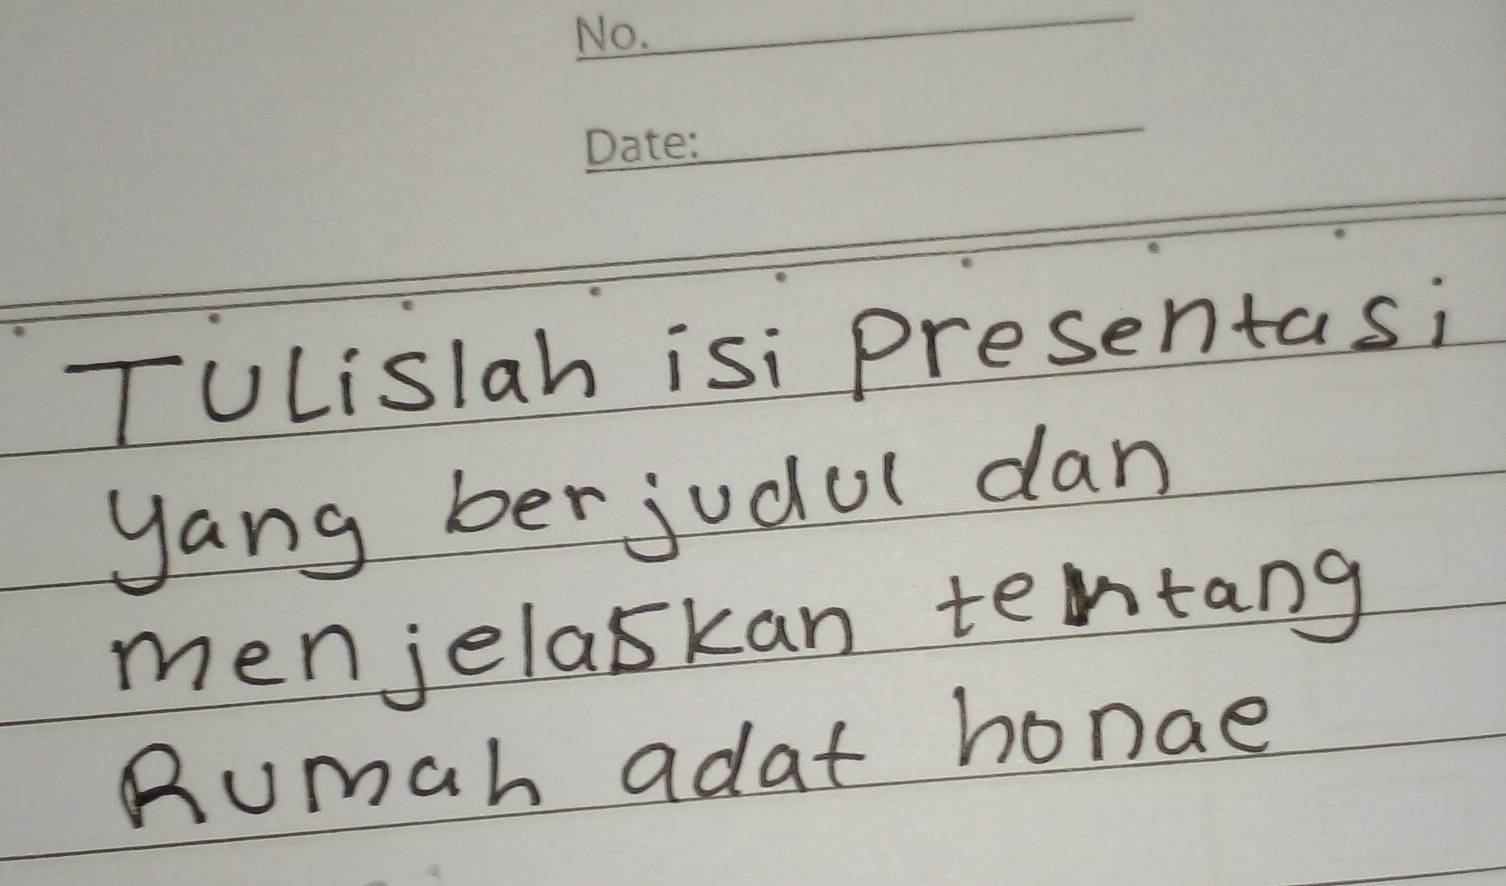 No.
Date:
TULislah isi Presentasi
yang berjudul dan
menjelaskan tentang
Rumah adat honae